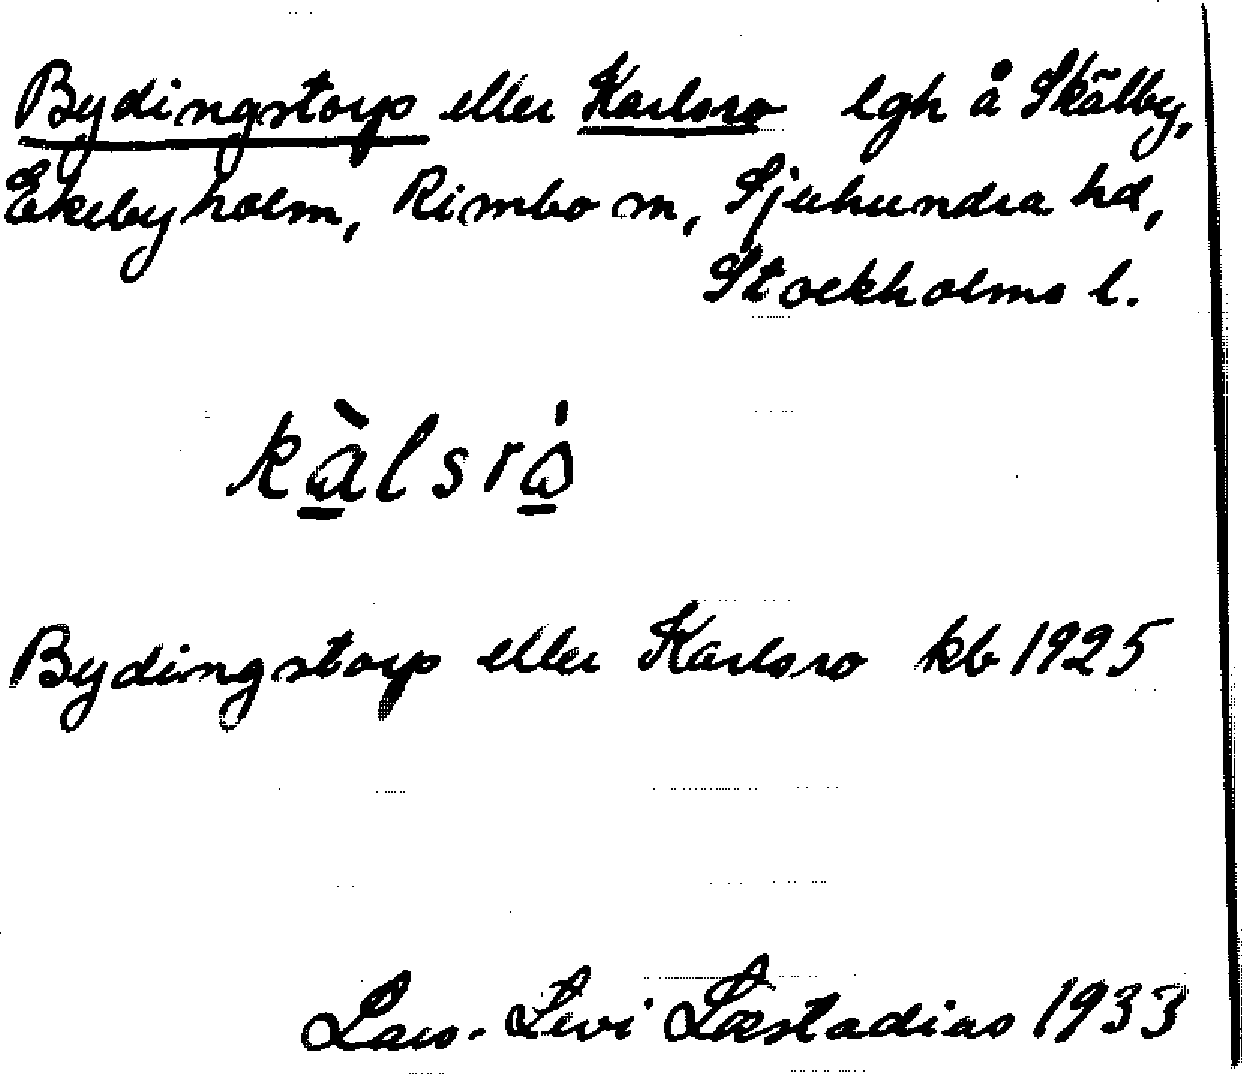 Bydingstorp eller Karlsro lgh å Skälby,
Ekebyholm, Rimbo sn, Sjuhundra hd,
Stockholms l.
kàlsrȯ
Bydingstorp eller Karlsro kb 1925
Lars-Levi Læstadius 1933